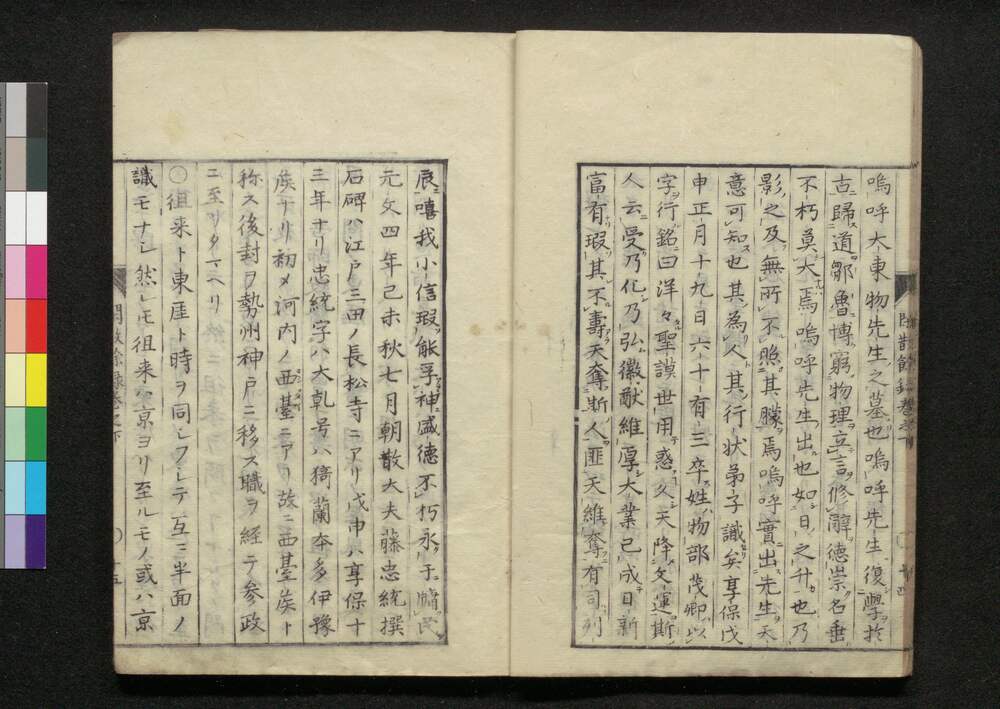 嗚呼大東物先生之墓也嗚呼先生復學於
古歸道鄒魯博窮物理立言修辭德崇名垂
不朽莫大焉嗚呼先生出也如日之升也乃
影之及無所不照其朦焉嗚呼實出先生天
意可知也其為人其行状弟子識矣享保戊
申正月十九日六十有三卒姓物部茂卿以
字行銘曰洋々聖謨世用惑久天降文運斯
人云受乃化乃弘徽猷維厚大業已成日新
富有瑕其不壽天奪斯人匪天維奪有司列
辰嘻我小信瑕能孚神盛德不朽永于牖民
元文四年己未秋七月朝散大夫藤忠統撰
石碑ハ江戸三田ノ長松寺ニアリ戊申ハ享保十
三年ナリ忠統字ハ大乹号ハ猗蘭本多伊豫
矦ナリ初メ河内ノ西臺ニアリ故ニ西臺矦ト
称ス後封ヲ勢州神戸ニ移ス職ヲ経テ参政
ニ至リタマヘリ
○徂来ト東厓ト時ヲ同シフレテ互ニ半面ノ
識モナシ然レモ徂来ハ京ヨリ至ルモノ或ハ京